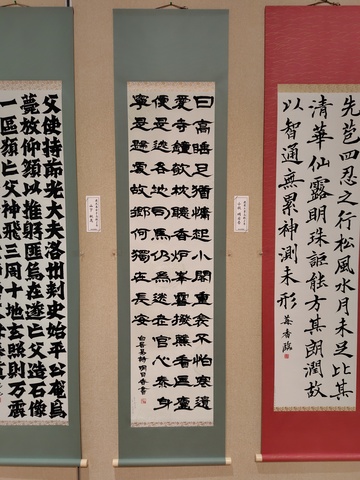 先苞四忍之行松風水月未足比其
清華仙露明珠詎能方其朗潤故
以智通無累神測未形 葉香臨
日高睡足猶慵起小閣重衾不怕寒遺
愛寺鐘欹枕聴香炉峯雪撥簾看匡廬
便是逃名地司馬仍為送老官心泰身
寧是歸處故郷何獨在長安
白居易詩 明日香書
父使持節光大夫洛州刺史始平公奄焉
薨放仰顔以摧躬匪烏在遂亡父造石像
一區願亡父神飛三周十地玄照則万震